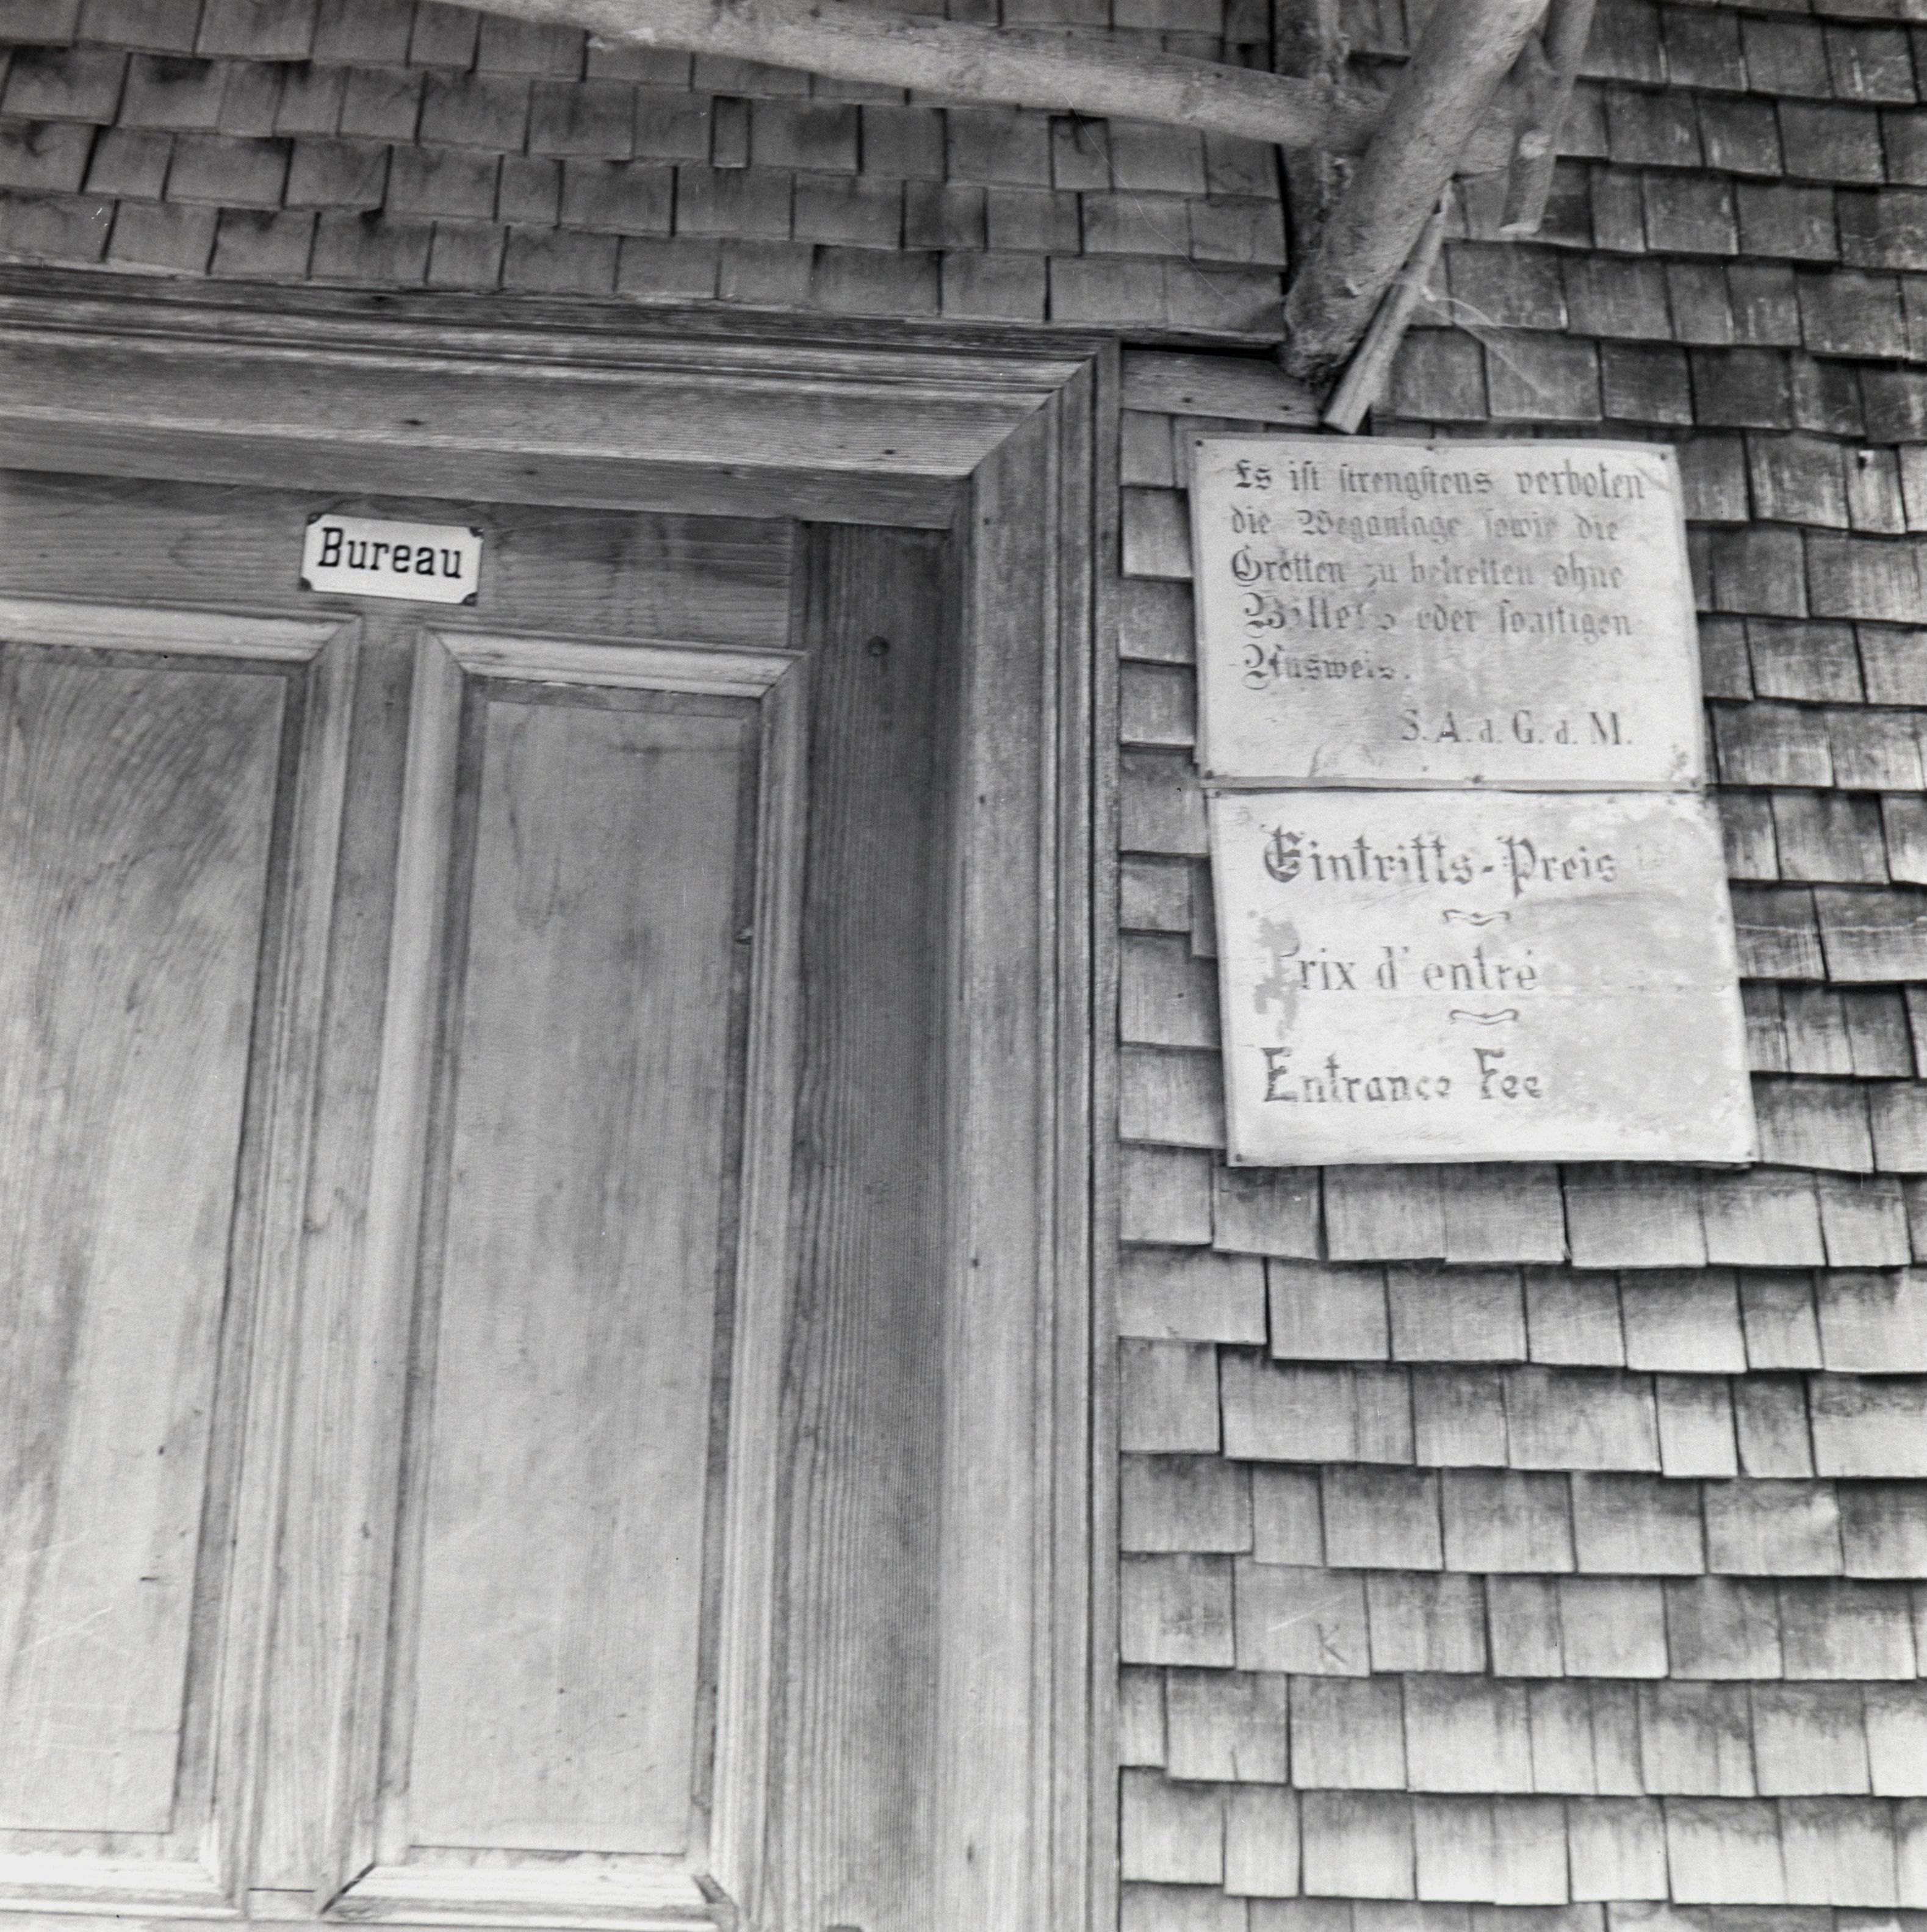 Bureau
Es ist strengstens verboten
die Weganlage sowie die
Grotten zu betretten ohne
Billets oder sonstigen
Ausweis.
S. A. d. G. d. M.
Eintritts-Preis
Prix d'entré
Entrance Fee
K